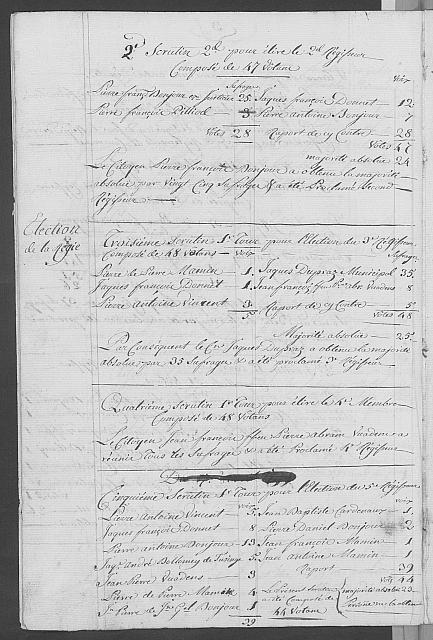 2d Scrutin 2d pour élire le 2d Régisseur
Composé de 47 Votans
Sufrages
Voix
Pierre franç Bonjour 25. Jaques françois Donnet — 12
Pierre françois Pilliod — 3 Pierre antoine Bonjour — 7
Votes 28 Raport de cy Contre — 28
Votes 47
majorité absolue 24
Le Citoyen Pierre françois Bonjour a obtenu la majorité
absolue par Vingt Cinq Sufrages & a été Proclamé Second
Régisseur
Election
de la Régie
Troisième Scrutin 1r Tour pour l'Election du 3e Régisseur
Composé de 48 Votans — Voix
Sufrages
Pierre de Pierre Mamin — 1. Jaques Dupraz Municipal 35.
Jaques françois Donnet — 1 Jean françois Vuadens 8
Pierre Antoine Vincent — 3 Raport de cy Contre — 5.
5 Votes 48
Majorité absolue — 25.
Par Consequent le Cen Jaques Dupraz a obtenu la majorité
absolue par 35 Sufrages & a été proclamé 3e Régisseur
Quatrième Scrutin 1r Tour pour élire le 4e Membre
Composé de 48 Votans
Le Citoyen Jean françois ffeu Pierre abram Vuadens a
réunir Tous les Sufrages & a été Proclamé 4e Régisseur
Cinquième Scrutin 1r Tour pour l'Election du 5e Régisseur
voix
Pierre Antoine Vincent — 5. Jean Baptiste Cardenaux — 1
Jaques françois Donnet — 8 Pierre Daniel Bonjour — 2
Pierre antoine Bonjour — 13 Jean françois Mamin — 1
André Dellomey 5. Jean Antoine Mamin — 1
Jean Pierre Vuadens — 3 Raport — 39
Pierre de Pierre Mamin — 4 Le Présent Scrutin Votes 44
1 a été Composé de majorité absolue 23
44 Votans Personne ne l'a obtenue
39